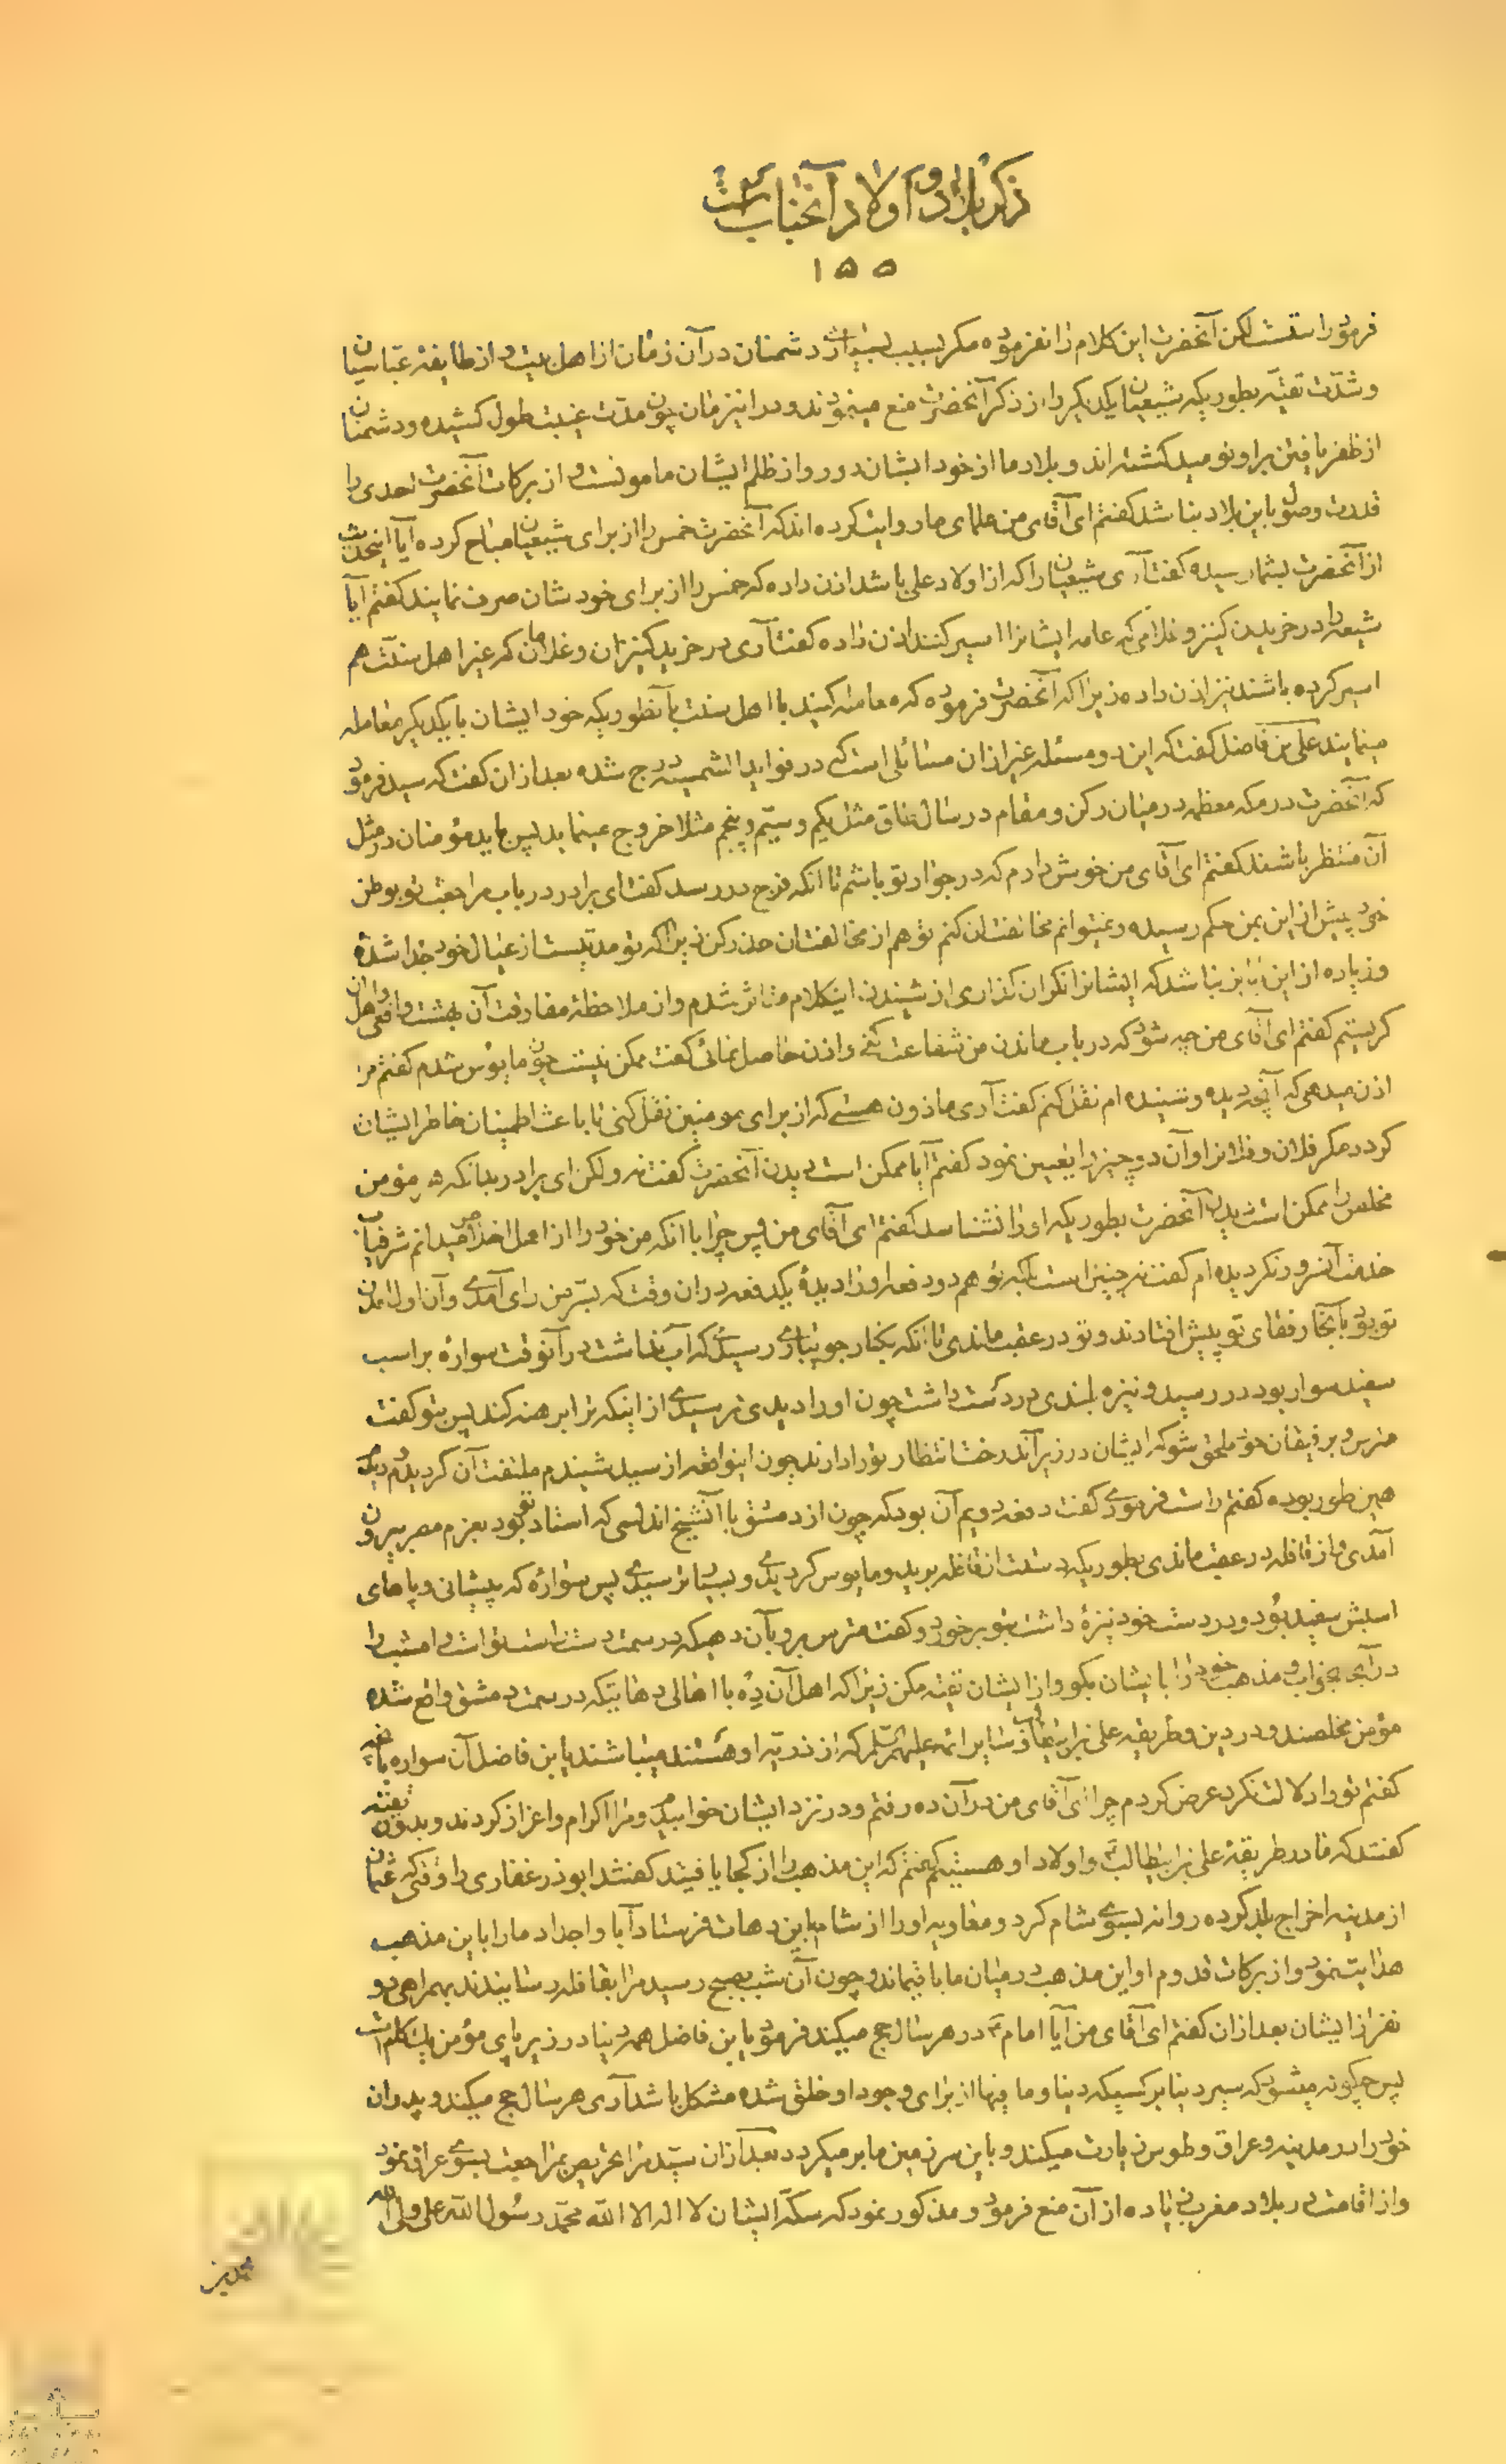 ذکر بلاد و اولاد آنجناب است
۱۵۵
فرمود راستست لکن آنحضرت این کلام را نفرموده مکر بسبب بسیاری دشمنان در آن زمان از اهل بیت و از طایفه عباسیان
و شدّت تقیّه بطوریکه شیعیان یکدیکر را از ذکر آنحضرت منع مینمودند و در اینزمان چون مدّت غیبت طول کشیده و دشمنان
از ظفر یافتن بر او نومید کشته اند و بلاد ما از خود ایشان دور و از ظلم ایشان مامونست و از برکات آنحضرت احدی را
قدرت وصول باین بلاد نباشد کفتم ای آقای من علمای ما روایت کرده اند که آنحضرت خمس را از برای شیعیان مباح کرده آیا اینحدیث
از آنحضرت بشما رسیده کفت آری شیعیان را که از اولاد علی باشد اذن داده که خمس را از برای خودشان صرف نمایند کفتم آیا
شیعه را در خریدن کنیز و غلامی که عامه ایشانرا اسیر کنند اذن داده کفت آری در خرید کنیزان و غلامان که غیر اهل سنّت هم
اسیر کرده باشند نیز اذن داده زیرا که آنحضرت فرموده که معامله کنید با اهل سنت بآنطوریکه خود ایشان با یکدیکر معامله
مینمایند علی بن فاضل کفت که این دو مسئله غیر از ان مسائلی است که در فواید الشمسیه درج شده بعد از ان کفت که سید فرمود
که آنحضرت در مکه معظمه در میان رکن و مقام در سال طاق مثل یکم و سیّم و پنجم مثلا خروج مینماید پس باید مؤمنان در مثل
آن منتظر باشند کفتم ای آقای من خوش دارم که در جوار تو باشم تا انکه فرج در رسد کفت ای برادر در باب مراجعت تو بوطن
خود پیش از این بمن حکم رسیده و نمیتوانم مخالفت آن کنم تو هم از مخالفت آن حذر کن زیرا که تو مدتیست از عیال خود جدا شدهٔ
و زیاده از این جایز نباشد که ایشانرا نکران کذاری از شنیدن اینکلام متاثر شدم و از ملاحظهٔ مفارقت آن بهشت واقعی و اهل آن
کریستم کفتم ای آقای من چه شود که در باب ماندن من شفاعت کنی و اذن حاصل نمائی کفت ممکن نیست چون مایوس شدم کفتم مرا
اذن میدهی که آنچه دیده و شنیده ام نقل کنم کفت آری ماذون هستی که از برای مومنین نقل کنی تا باعث اطمینان خاطر ایشان
کردد مکر فلان و فلانرا و آن دو چیز را تعیین نمود کفتم آیا ممکن است دیدن آنحضرت کفت نه ولکن ای برادر بدانکه هر مؤمن
مخلص را ممکن است دیدن آنحضرت بطوریکه او را نشناسد کفتم ای آقای من پس چرا با انکه من خود را از اهل اخلاص میدانم شرفیاب
خدمت آنسرور نکردیده ام کفت نه چنین است بلکه تو هم دو دفعه او را دیدهٔ یکدفعه در ان وقت که بسرّ من رای آمدی و آن اول آمدن
تو بود بآنجا رفقای تو پیش افتادند و تو در عقب ماندی تا انکه بکنار جویباری رسیدی که آب نداشت در آنوقت سوارهٔ بر اسب
سفید سوار بود در رسید و نیزه بلندی در دست داشت چون او را دیدی ترسیدی از اینکه ترا برهنه کند پس بتو کفت
مترس و برفیقان خود ملحق شو که ایشان در زیر آندرخت انتظار تو را دارند چون اینواقعه را از سید شنیدم ملتفت آن کردیدم دیدم
همین طور بوده کفتم راست فرمودی کفت دفعه دویم آن بود که چون از دمشق با آنشیخ اندلسی که استاد تو بود بعزم مصر بیرون
آمدی و از قافله در عقب ماندی بطوریکه دستت از قافله برید و مایوس کردیدی و بسیار ترسیدی پس سوارهٔ که پیشانی و پاهای
اسبش سفید بود و در دست خود نیزهٔ داشت بتو برخورد و کفت مترس برو بآن دهیکه در سمت دست راست تواست و امشب را
در آنجا بخواب و مذهب خود را بایشان بکو و از ایشان تقیّه مکن زیرا که اهل آن دِه با اهالی دهاتیکه در سمت دمشق واقع شده
مؤمن مخلصند و در دین و طریقه علی بن ابیطالب و سایر ائمه علیهم السلم که از ذریّه او هستند میباشند یابن فاضل آن سواره
کفتم تو را دلالت نکرد عرض کردم چرا ای آقای من در آن ده رفتم و در نزد ایشان خوابیدم و مرا اکرام و اعزاز کردند و بدون تقیّه
کفتند که ما در طریقهٔ علی بن ابیطالبؑ و اولاد او هستیم کفتم که این مذهب را از کجا یافتید کفتند ابوذر غفاری را وقتی که عثمان
از مدینه اخراج بلد کرده روانه بسوی شام کرد و معاویه او را از شام باین دهات فرستاد آبا و اجداد ما را باین مذهب
هدایت نمود و از برکات قدوم او این مذهب در میان ما باقیماند و چون آن شب بصبح رسید مرا بقافله رسانیدند بهمراهی دو
نفر از ایشان بعد از ان کفتم ای آقای من آیا امامؑ در هر سال حج میکند فرمود یابن فاضل همه دنیا در زیر پای مؤمن یک کام است
پس چکونه میشود که سیر دنیا بر کسیکه دنیا و ما فیها از برای وجود او خلق شده مشکل باشد آری هر سال حج میکند و پدران
خود را در مدینه و عراق و طوس زیارت میکند و باین سرزمین ما بر میکردد بعد از ان سیّد مرا تحریص بمراجعت بسوی عراق نمود
و از اقامت در بلاد مغرب زیاده از آن منع فرمود و مذکور نمود که سکّه ایشان لا اله الا الله محمّد رسُول الله علی ولی الله
محمد بن